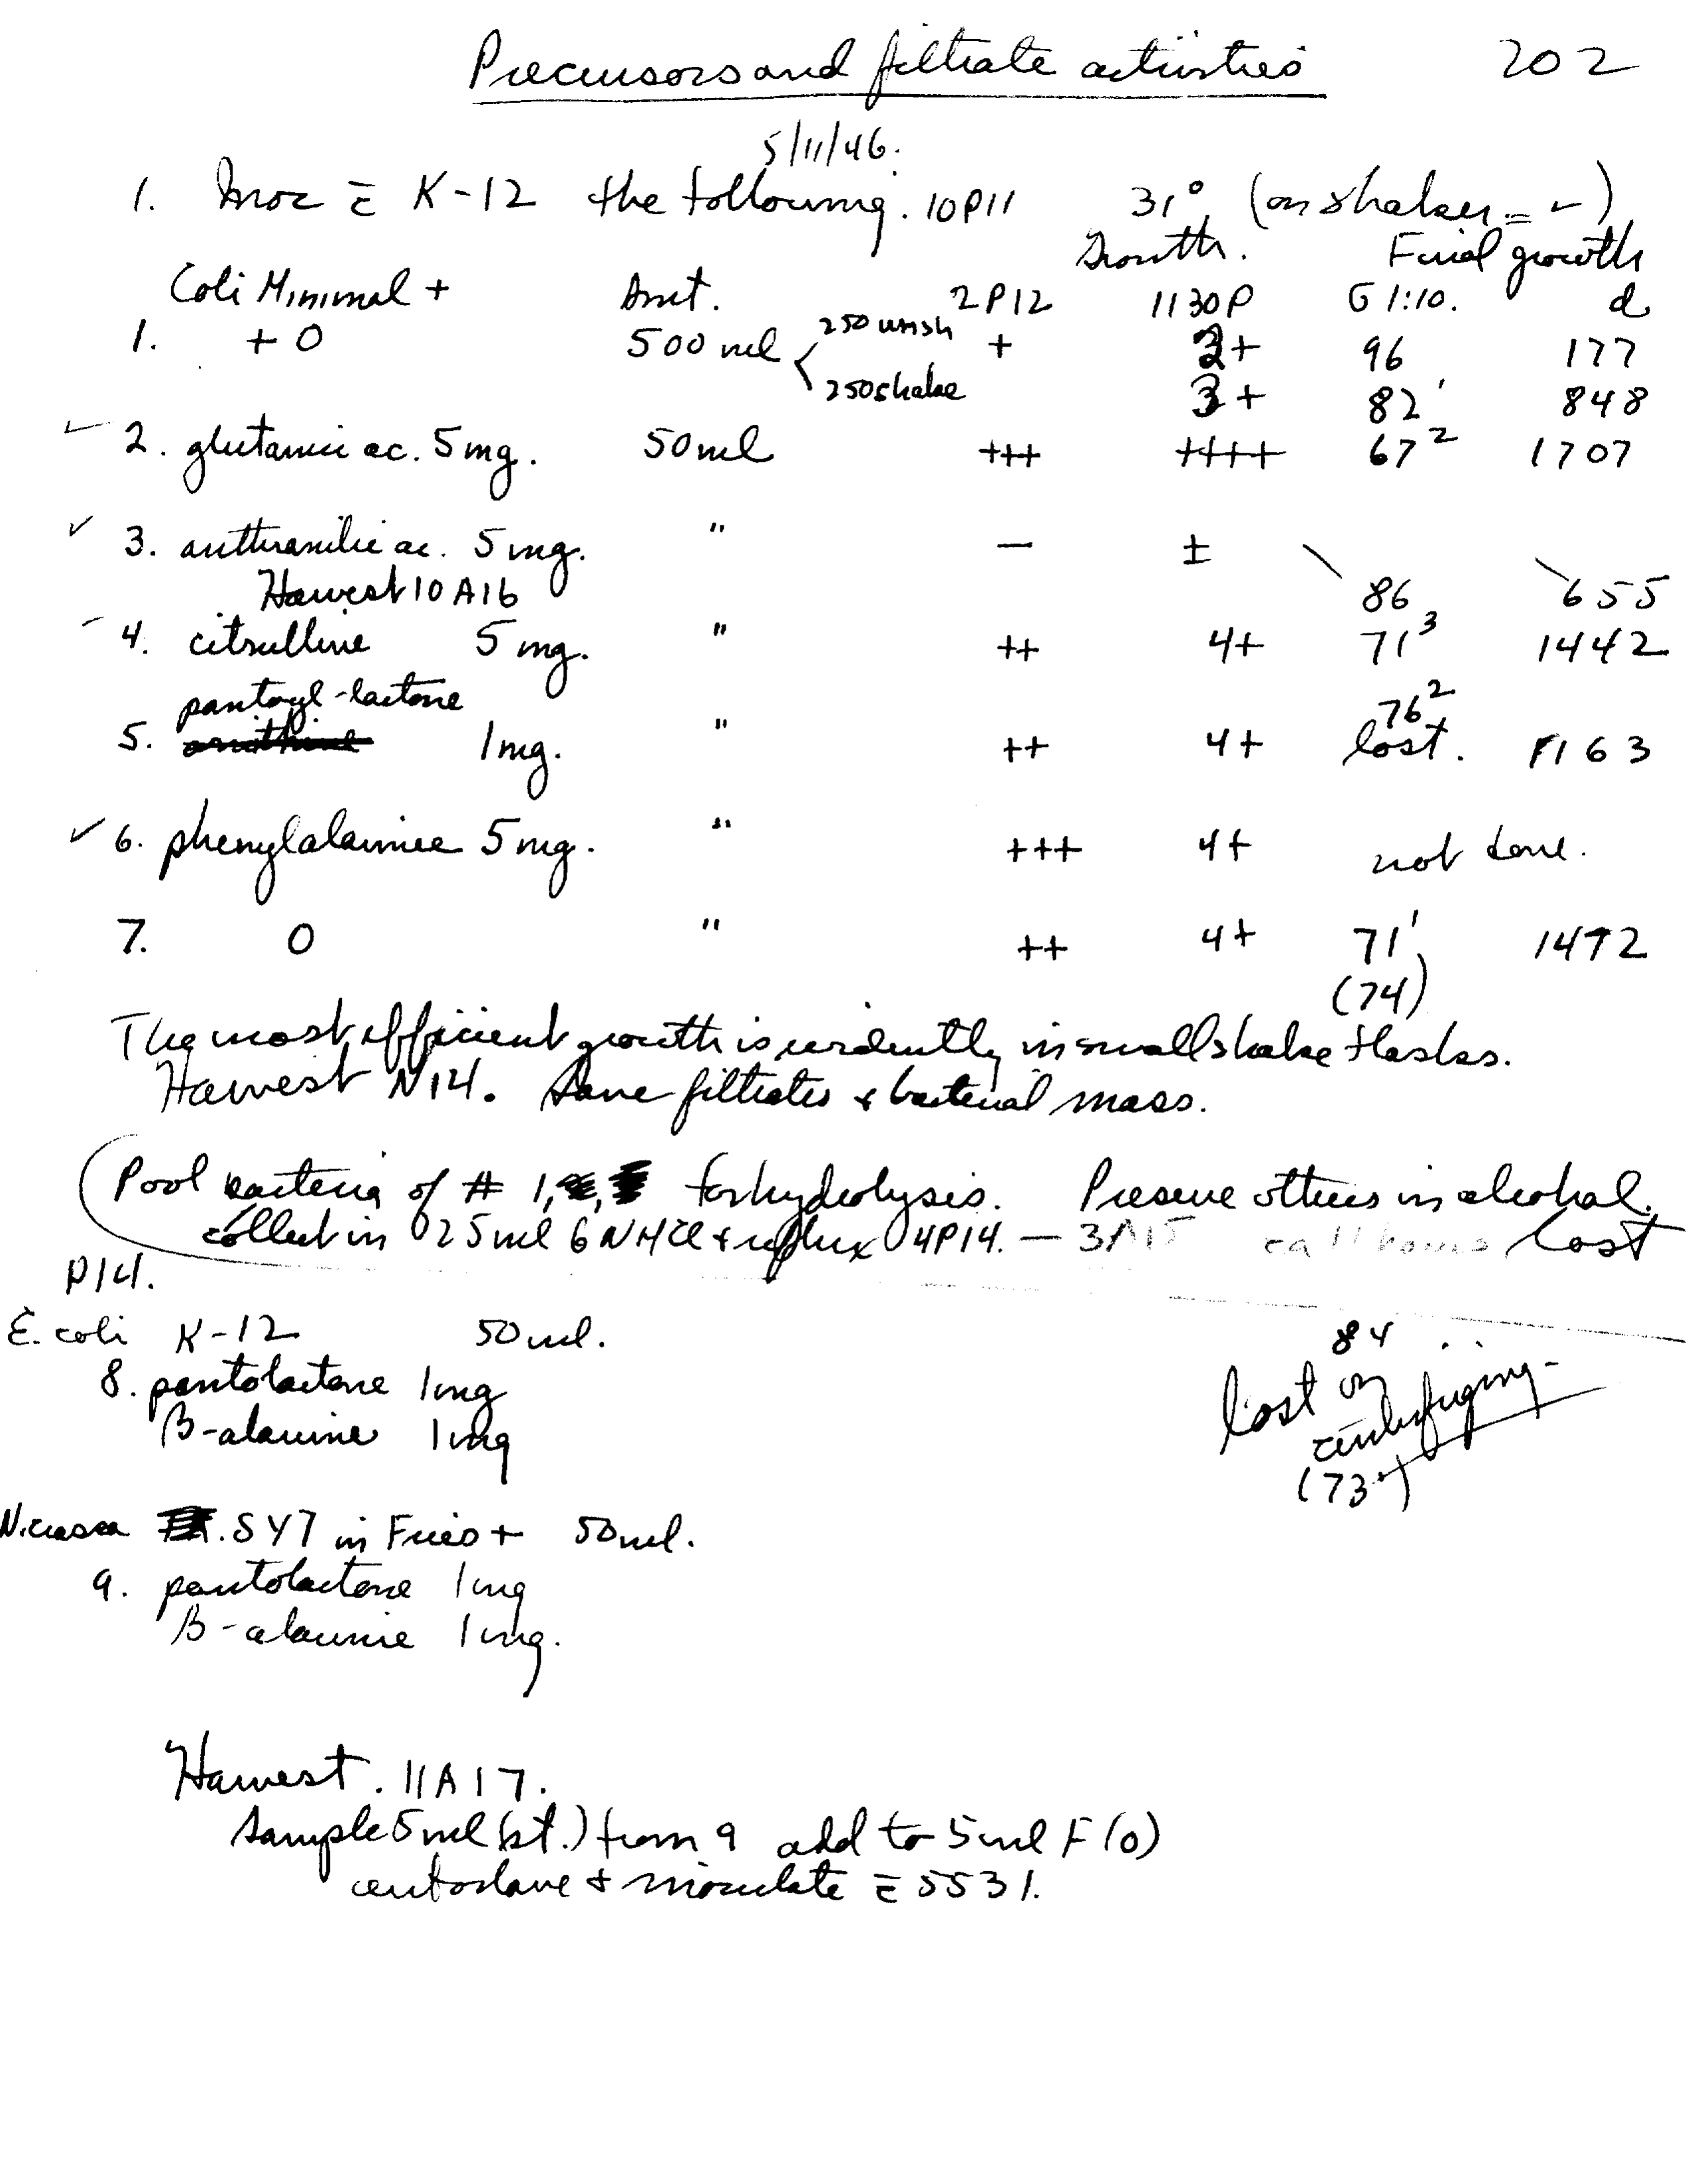 Precursors and filtrate activities 202
5/11/46.
1. Inoc c̄ K-12 the following. 10P11 31° (on shaker = ✓)
Growth. Final growth
Coli Minimal + Amt. 2P12 1130P G 1:10. d
1. + 0 500 ml < 250 unsh + 2+ 96 177
250 shake 3+ 82' 848
✓ 2. glutamic ac. 5 mg. 50 ml +++ ++++ 67² 1707
✓ 3. anthranilic ac. 5 mg. " — ±
Harvest 10 A16 86 655
4. citrulline 5 mg. " ++ 4+ 71³ 1442
pantoyl-lactone 76²
5. ornithine 1 mg. " ++ 4+ lost. 1163
✓ 6. phenylalanine 5 mg. " +++ 4+ not done.
7. 0 " ++ 4+ 71' 1472
(74)
The most efficient growth is evidently in small shake flasks.
Harvest N14. Save filtrates & bacterial mass.
Pool bacteria of # 1, for hydrolysis. Preserve others in alcohol.
collect in 25 ml 6 N HCl & reflux 4P14. — 3A15 ca 11 hours Lost
P14.
E. coli K-12 50 ml. 84
8. pantolactone 1 mg lost on
β-alanine 1 mg centrifuging -
(73·)
N. crassa .SY7 in Fries + 50 ml.
9. pantolactone 1 mg
β-alanine 1 mg.
Harvest. 11A17.
Sample 5 ml (st.) from 9 add to 5 ml F (0)
autoclave & inoculate c̄ 5531.